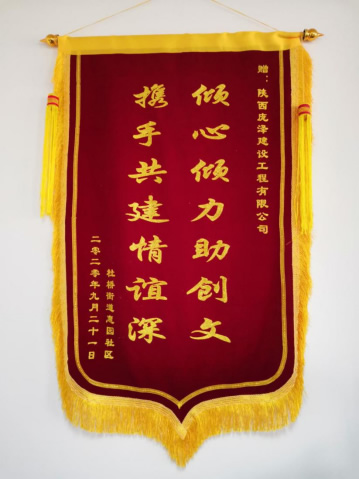 赠：陕西庞泽建设工程有限公司
倾心倾力助创文
携手共建情谊深
杜桥街道惠园社区
二零二零年九月二十一日